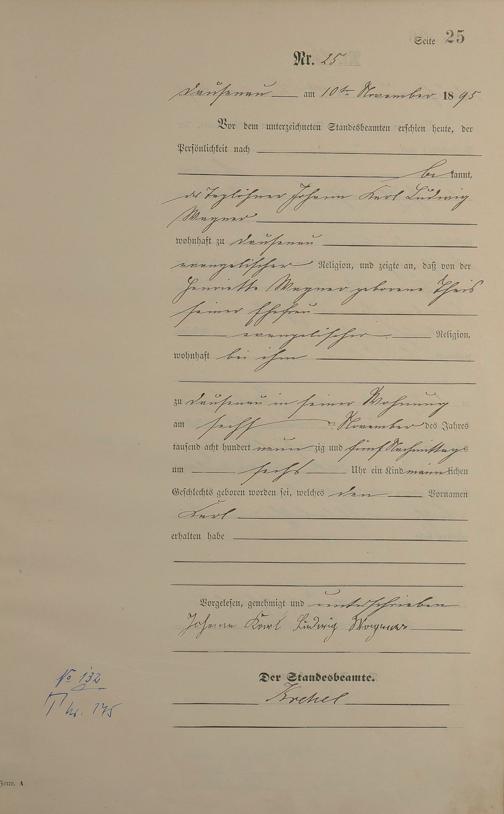 Seite 25
Nr. 25.
Dausenau am 10ten November 1895
Vor dem unterzeichneten Standesbeamten erschien heute, der
Persönlichkeit nach
be kannt,
der Taglöhner Johann Karl Ludwig
Wagner
wohnhaft zu Dausenau
evangelischer Religion, und zeigte an, daß von der
Henriette Wagner geborene Theis
seiner Ehefrau
evangelischer Religion,
wohnhaft bei ihm
zu Dausenau in seiner Wohnung
am November des Jahres
tausend acht hundert neun zig und fünf Nachmittags
um sechs Uhr ein Kind männlichen
Geschlechts geboren worden sei, welches den Vornamen
Karl
erhalten habe
Vorgelesen, genehmigt und unterschrieben
Johann Karl Ludwig Wagner
Der Standesbeamte.
No 132
Nr. 175
Form. A